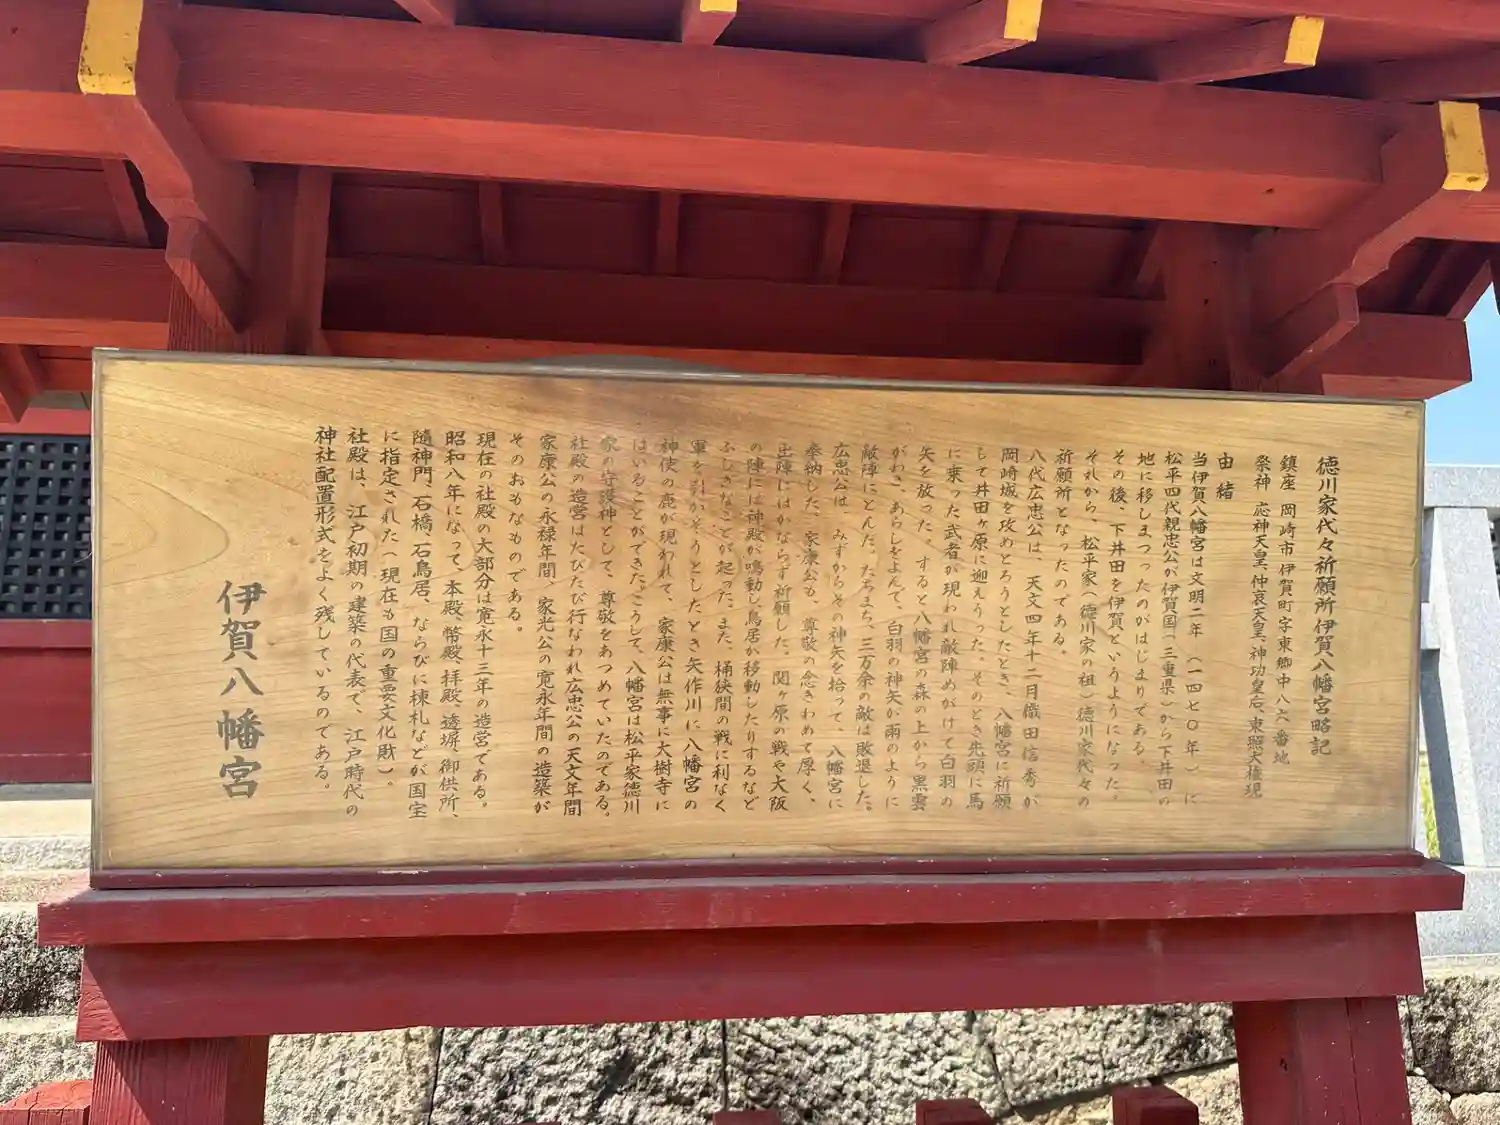 徳川家代々祈願所伊賀八幡宮略記
鎮座 岡崎市伊賀町字東郷中八六番地
祭神 応神天皇、仲哀天皇、神功皇后、東照大権現
由緒
当伊賀八幡宮は文明二年(一四七〇年)に
松平四代親忠公が伊賀国(三重県)から下井田の
地に移しまつったのがはじまりである。
その後、下井田を伊賀、というようになった。
それから、松平家(徳川家の祖)徳川家代々の
祈願所となったのである。
八代広忠公は、天文四年十二月織田信秀が
岡崎城を攻めとろうとしたとき、八幡宮に祈願
して井田ヶ原に迎えうった。そのとき先頭に馬
に乗った武者が現われ敵陣めがけて白羽の
矢を放った。すると八幡宮の森の上から黒雲
がわき、あらしをよんで、白羽の神矢が雨のように
敵陣にとんだ。たちまち、三万余の敵は敗退した。
広忠公は、みずからその神矢を拾って、八幡宮に
奉納した。家康公も、尊敬の念きわめて厚く、
出陣にはかならず祈願した。関ヶ原の戦や大阪
の陣には神殿が鳴動し、鳥居が移動したりするなど
ふしぎなことが起った。また、桶狭間の戦に利なく
軍を引かそうとしたとき矢作川に八幡宮の
神使の鹿が現われて、家康公は無事に大樹寺に
はいることができた。こうして、八幡宮は松平家徳川
家の守護神として、尊敬をあつめていたのである。
社殿の造営はたびたび行なわれ広忠公の天文年間
家康公の永禄年間、家光公の寛永年間の造築が
そのおもなものである。
現在の社殿の大部分は寛永十三年の造営である。
昭和八年になって、本殿、幣殿、拝殿、透塀、御供所、
随神門、石橋、石鳥居、ならびに棟札などが国宝
に指定された(現在も国の重要文化財)。
社殿は、江戸初期の建築の代表で、江戸時代の
神社配置形式をよく残しているのである。
伊賀八幡宮